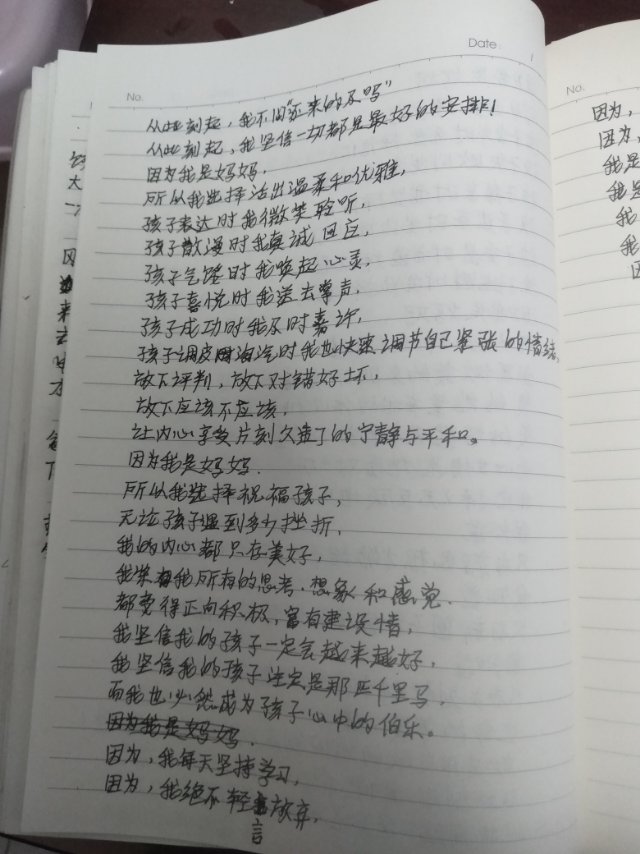 Date
No.
从此刻起，我不问"还来的及吗"
从此刻起，我坚信一切都是最好的安排！
因为我是妈妈，
所以我选择活出温柔和优雅，
孩子表达时我微笑聆听，
孩子散漫时我真诚回应，
孩子气馁时我唤起心灵，
孩子喜悦时我送去掌声，
孩子成功时我及时嘉许，
孩子调皮淘气时我也快速调节自己紧张的情绪，
放下评判，放下对错好坏，
放下应该不应该，
让内心享受片刻久违了的宁静与平和。
因为我是妈妈，
所以我选择祝福孩子，
无论孩子遇到多少挫折，
我的内心都只存美好，
我所有的思考、想象和感觉，
都变得正向积极，富有建设情，
我坚信我的孩子一定会越来越好，
我坚信我的孩子注定是那匹千里马，
而我也必然成为孩子心中的伯乐。
因为我是妈妈，
因为，我每天坚持学习，
因为，我绝不轻言放弃，
No.
因为，
因为，
我是
我是
我
我
因